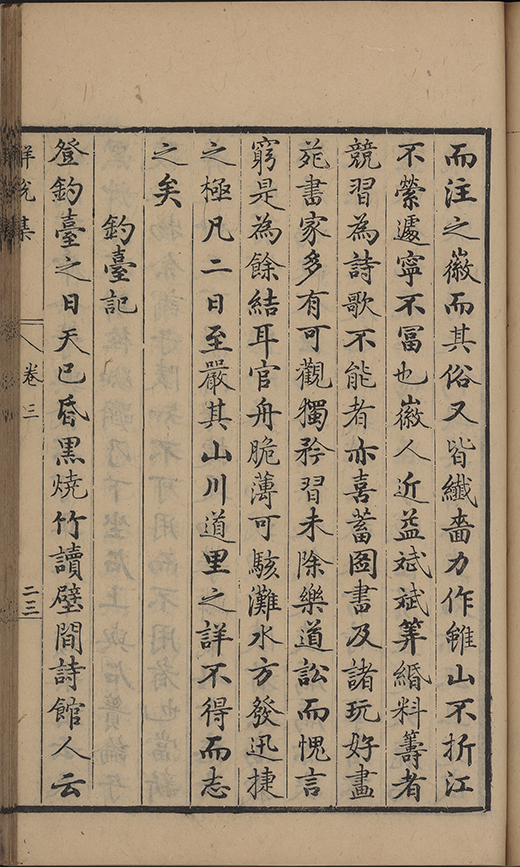 而注之徽而其俗又皆纖嗇力作雖山不折江
不縈遽寧不冨也徽人近益斌斌筭緡料籌者
競習為詩歌不能者亦喜蓄圖書及諸玩好畫
苑書家多有可觀獨矜習未除樂道訟而愧言
窮是為餘結耳官舟脆薄可駭灘水方發迅捷
之極凡二日至嚴其山川道里之詳不得而志
之矣
釣臺記
登釣臺之日天已昏黒燒竹讀壁間詩館人云
解脫集
卷三
二三